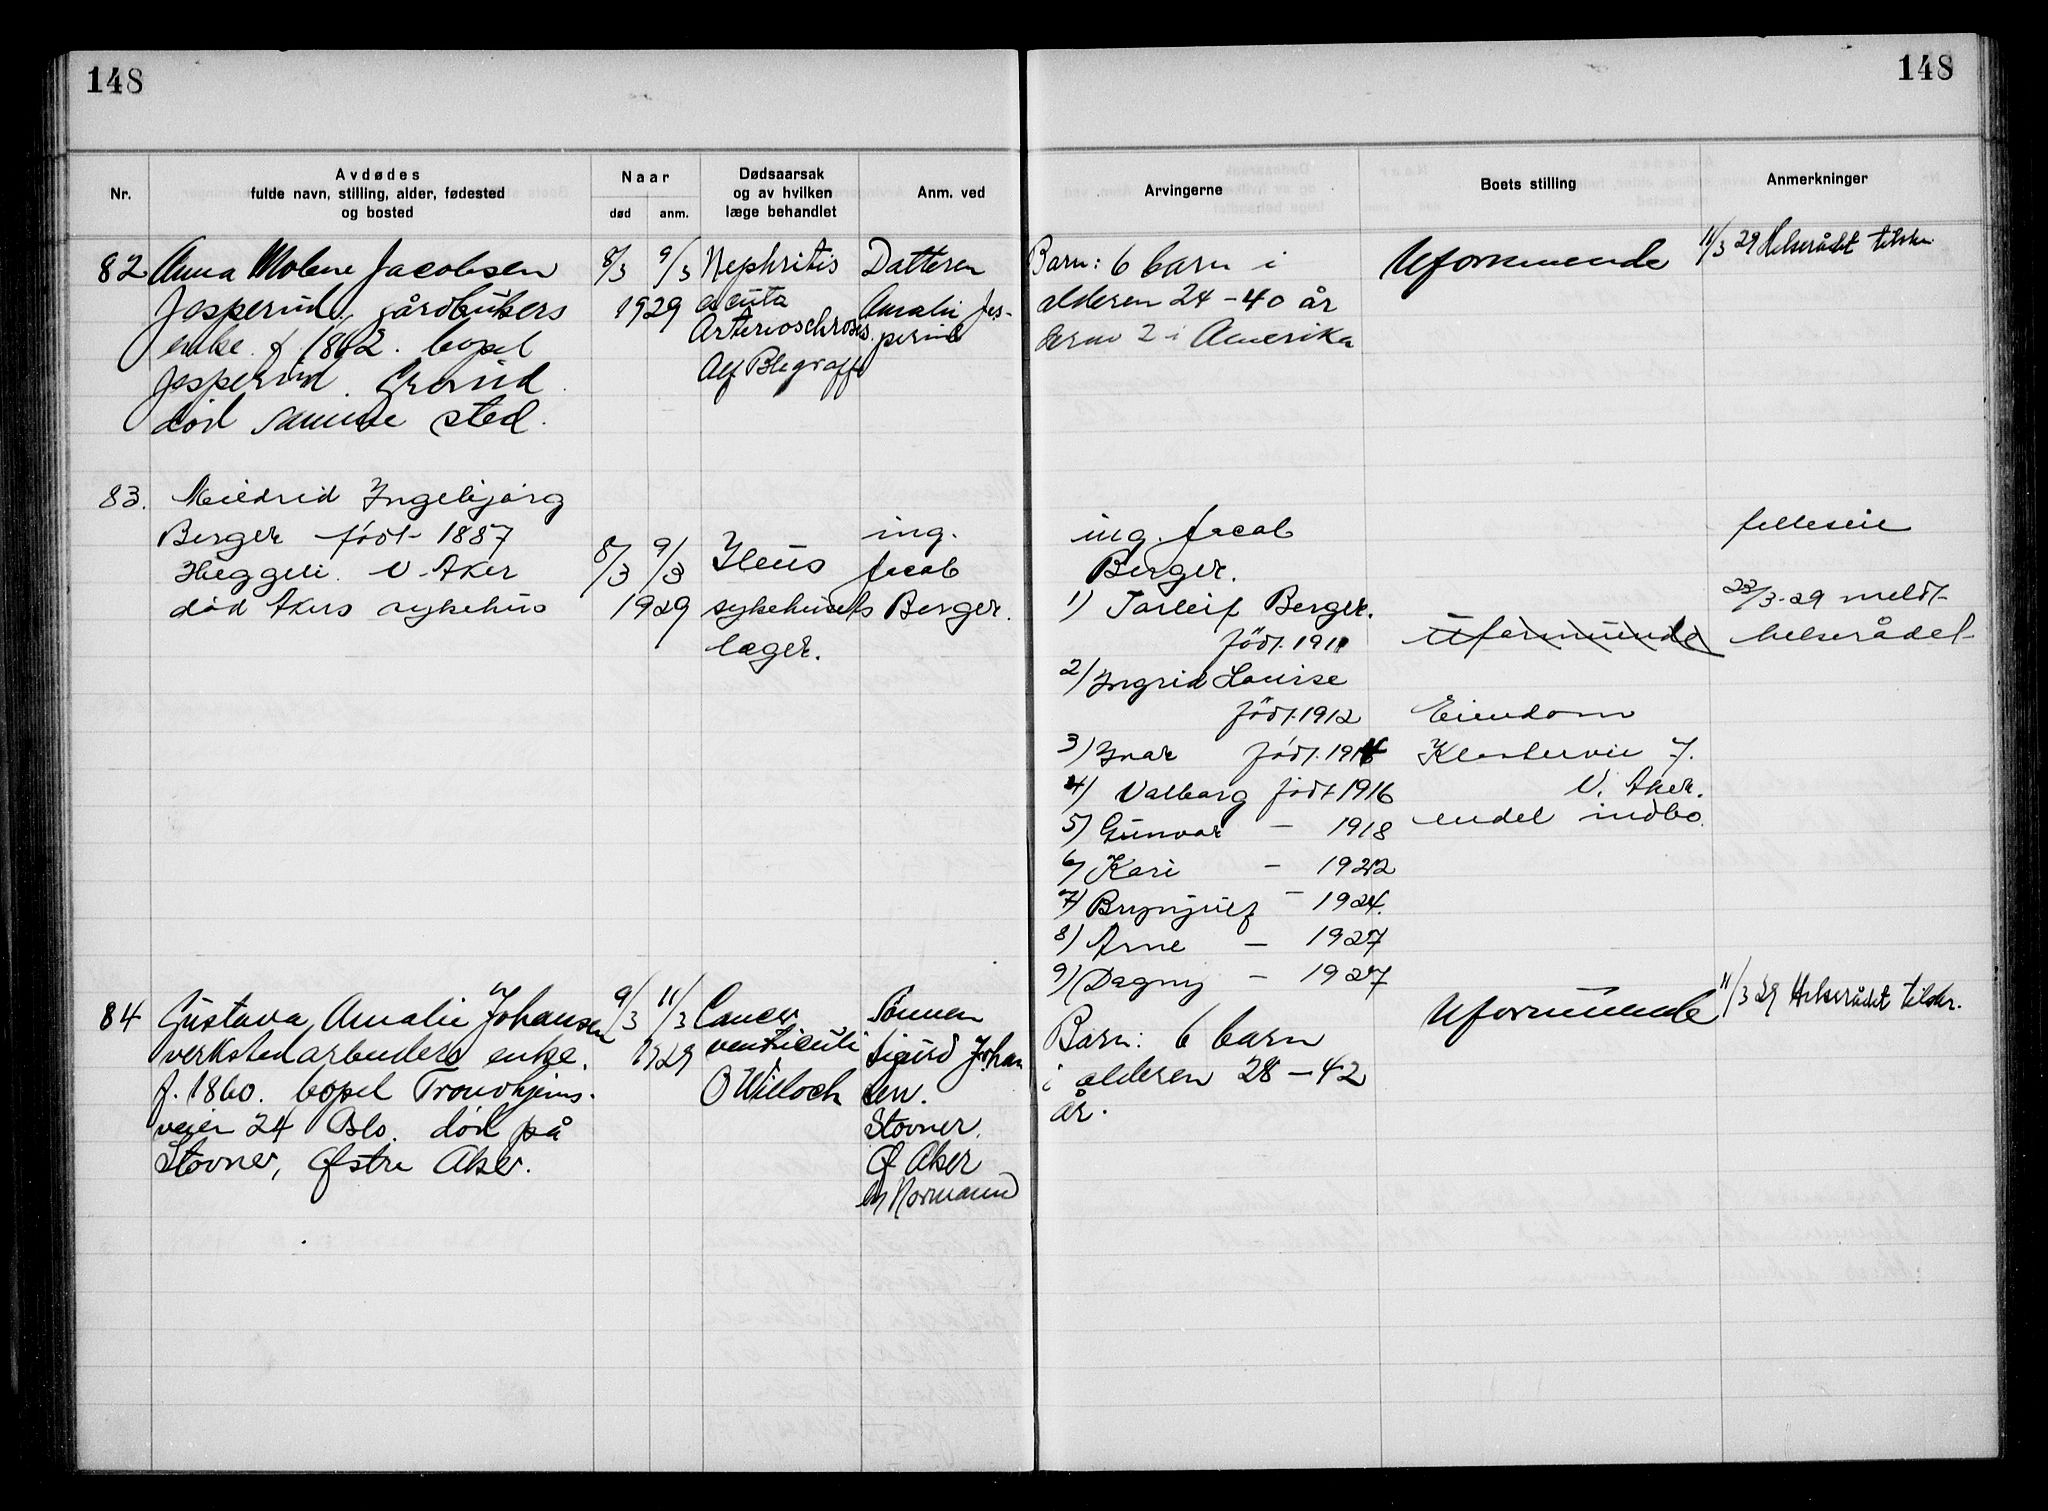 148
148
Nr.
Avdødes
fulde navn, stilling, alder, fødested
og bosted
Naar
død
anm.
Dødsaarsak
og av hvilken
læge behandlet
Anm. ved
Arvingerne
Boets stilling
Anmerkninger
82
Anna Molene Jacobsen
Jesperud, gårdbrukers
enke. f 1862. bopel
Jesperud. Grorud.
død samme sted.
8/3
9/3
1929
Nephritis
acuta
Alf
Datteren
Amalie Jes-
perud
Barn: 6 barn i
alderen 24-40 år
derav 2 i Amerika
Uformuende
11/3 29 Helserådet tilskr.
83.
Meildrid Ingebjørg
Berger født 1887
Heggeli. V. Aker
død Akers sykehus
8/3
9/3
1929
Ileus
sykehusets
læger.
ing.
Jacob
Berger.
ing. Jacob
Berger.
1) Torleif Berger.
født. 1911
2) Ingrid Louise
født. 1912
3) Ivar født. 1914
4) Valborg født 1916
5) Gunvor - 1918
6) Kari - 1922
7) Brynjulf - 1924.
8) Arne - 1927
9) Dagny - 1927
Uformuende
Eiendom
Klosterveie 7.
V. Aker.
endel indbo.
felleseie
22/3-29 meldt
helserådet
84
Gustava Amalie Johansen
verkstedarbeiders enke.
f. 1860. bopel Trondhjems-
veien 24 Oslo. død på
Stovner, Østre Aker.
9/3
11/3
1929
Cancer
ventriculi
O Willoch
Sønnen
Sigurd Johan
sen.
Stovner.
Ø Aker
Normann
Barn: 6 barn
i alderen 28-42
år.
Uformuende
11/3 29 Helserådet tilskr.